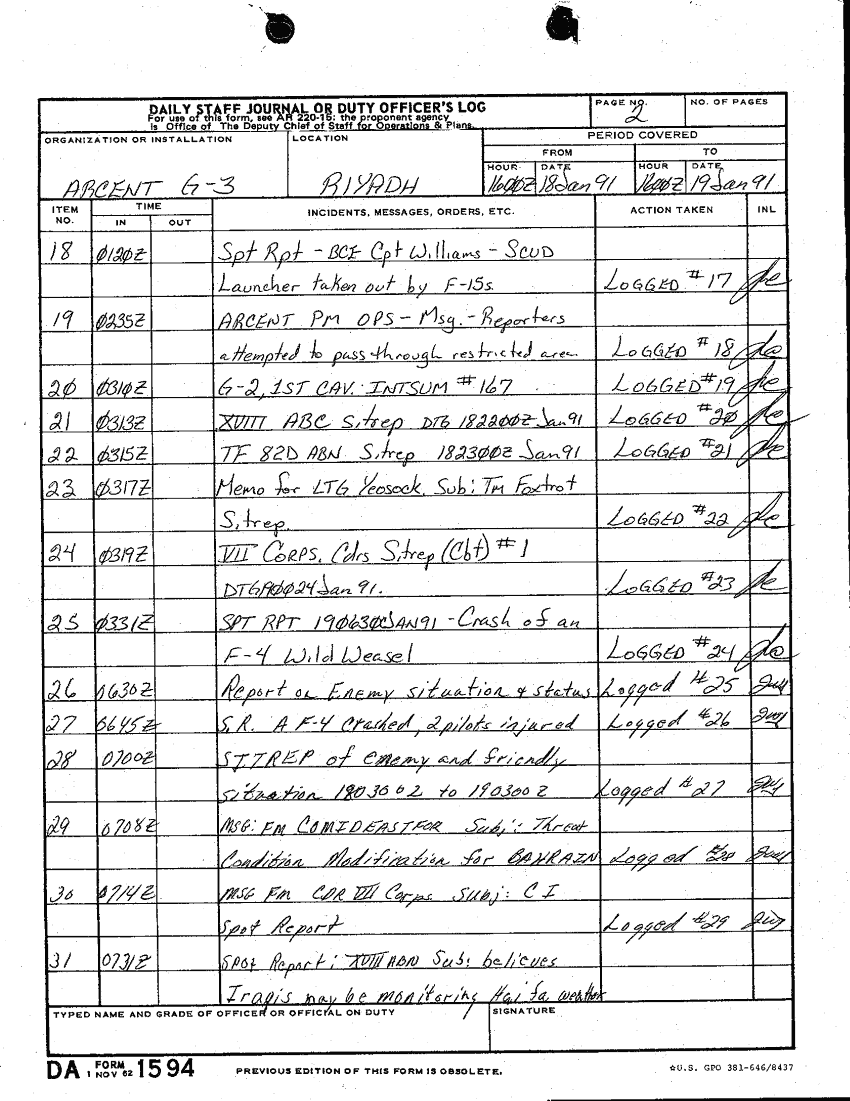 DAILY STAFF JOURNAL OR DUTY OFFICER'S LOG
For use of this form, see AR 220-15; the proponent agency
is Office of The Deputy Chief of Staff for Operations & Plans.
PAGE NO.
2
NO. OF PAGES
ORGANIZATION OR INSTALLATION
ARCENT G-3
LOCATION
RIYADH
PERIOD COVERED
FROM TO
HOUR DATE HOUR DATE
1600Z 18 Jan 91 1600Z 19 Jan 91
ITEM NO. TIME INCIDENTS, MESSAGES, ORDERS, ETC. ACTION TAKEN INL
IN OUT
18 0120Z Spt Rpt - BCE Cpt Williams - SCUD
Launcher taken out by F-15s LOGGED #17
19 0235Z ARCENT PM OPS - Msg. - Reporters
attempted to pass through restricted area LOGGED #18
20 0310Z G-2, 1ST CAV. INTSUM #167 LOGGED #19
21 0313Z XVIII ABC Sitrep DTG 182200Z Jan 91 LOGGED #20
22 0315Z TF 82D ABN Sitrep 182300Z Jan 91 LOGGED #21
23 0317Z Memo for LTG Yeosock. Sub: Tm Foxtrot
Sitrep LOGGED #22
24 0319Z VII CORPS. Cdrs Sitrep (Cbt) #1
DTG 190024 Jan 91. LOGGED #23
25 0331Z SPT RPT 190630C JAN 91 - Crash of an
F-4 Wild Weasel LOGGED #24
26 0630Z Report on Enemy situation & status Logged #25
27 0645Z S.R. A F-4 crashed, 2 pilots injured Logged #26
28 0700Z SITREP of enemy and friendly
situation 180300Z to 190300Z Logged #27
29 0708Z MSG: FM COMIDEASTFOR Subj: Threat
Condition Modification for BAHRAIN Logged #28
30 0714Z MSG FM CDR VII Corps Subj: CI
Spot Report Logged #29
31 0731Z SPOT Report: XVIII ABN Sub: believes
Iraqis may be monitoring Haifa weather
TYPED NAME AND GRADE OF OFFICER OR OFFICIAL ON DUTY SIGNATURE
DA FORM 1 NOV 62 1594
PREVIOUS EDITION OF THIS FORM IS OBSOLETE.
☆U.S. GPO 381-646/8437